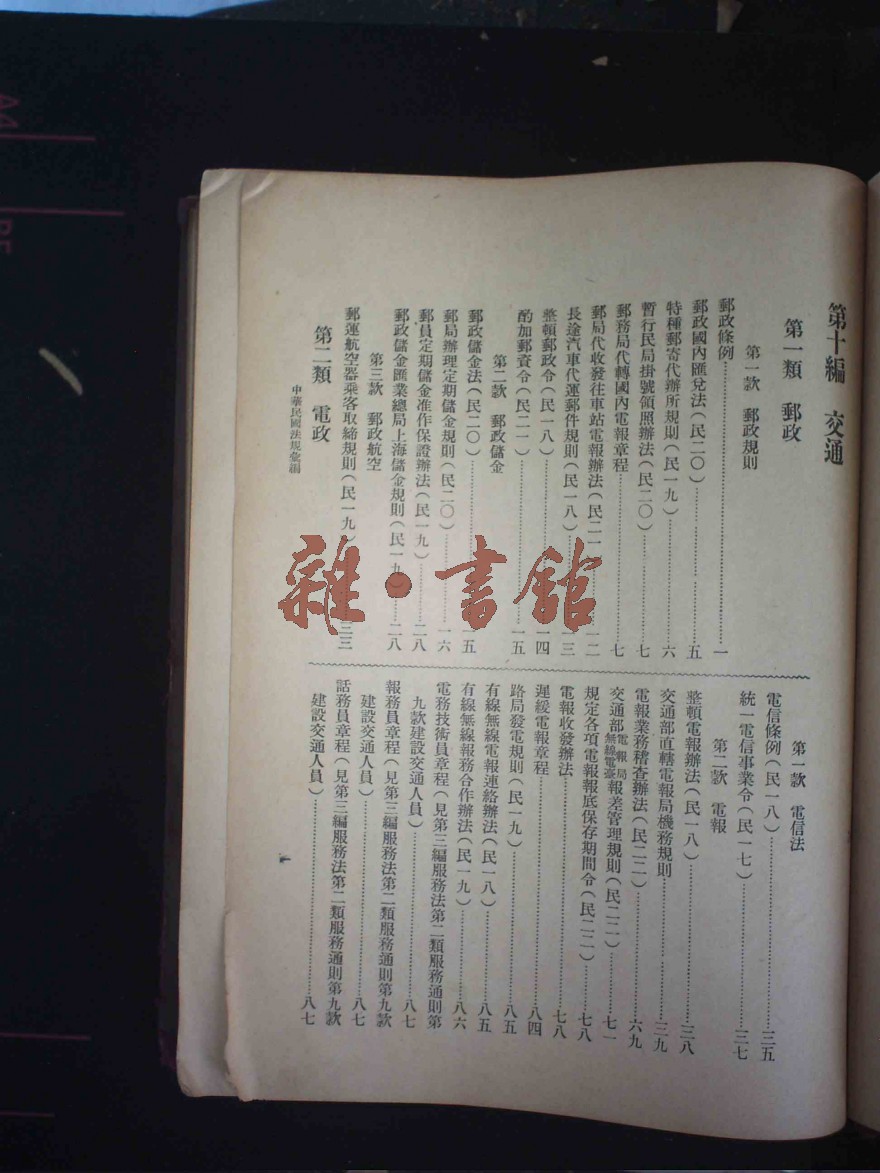 第十編　交通
第一類　郵政
第一款　郵政規則
郵政條例……一
郵政國內匯兌法（民二〇）……五
特種郵寄代辦所規則（民一九）……六
暫行民局掛號領照辦法（民二〇）……七
郵務局代轉國內電報章程……七
郵局代收發往車站電報辦法（民二一……一二
長途汽車代運郵件規則（民一八）……一三
整頓郵政令（民一八）……一四
酌加郵資令（民二一）……一五
第二款　郵政儲金
郵政儲金法（民二〇）……一五
郵局辦理定期儲金規則（民二〇）……一六
郵員定期儲金准作保證辦法（民一九）……二八
郵政儲金匯業總局上海儲金規則（民一九）……二八
第三款　郵政航空
郵運航空器乘客取締規則（民一九……三三
第二類　電政
中華民國法規彙編
第一款　電信法
電信條例（民一八）……三五
統一電信事業令（民一七）……三七
第二款　電報
整頓電報辦法（民一八）……三八
交通部直轄電報局機務規則……三九
電報業務稽查辦法（民二二）……六九
交通部電報局無線電臺報差管理規則（民二二）……七一
規定各項電報報底保存期間令（民二二）……七八
電報收發辦法……七八
遲緩電報章程……八四
路局發電規則（民一九）……八五
有線無線電報連絡辦法（民一八）……八五
有線無線報務合作辦法（民一九）……八六
電務技術員章程（見第三編服務法第二類服務通則第
九款建設交通人員）……八七
報務員章程（見第三編服務法第二類服務通則第九款
建設交通人員）……八七
話務員章程（見第三編服務法第二類服務通則第九款
建設交通人員）……八七
雜・書館